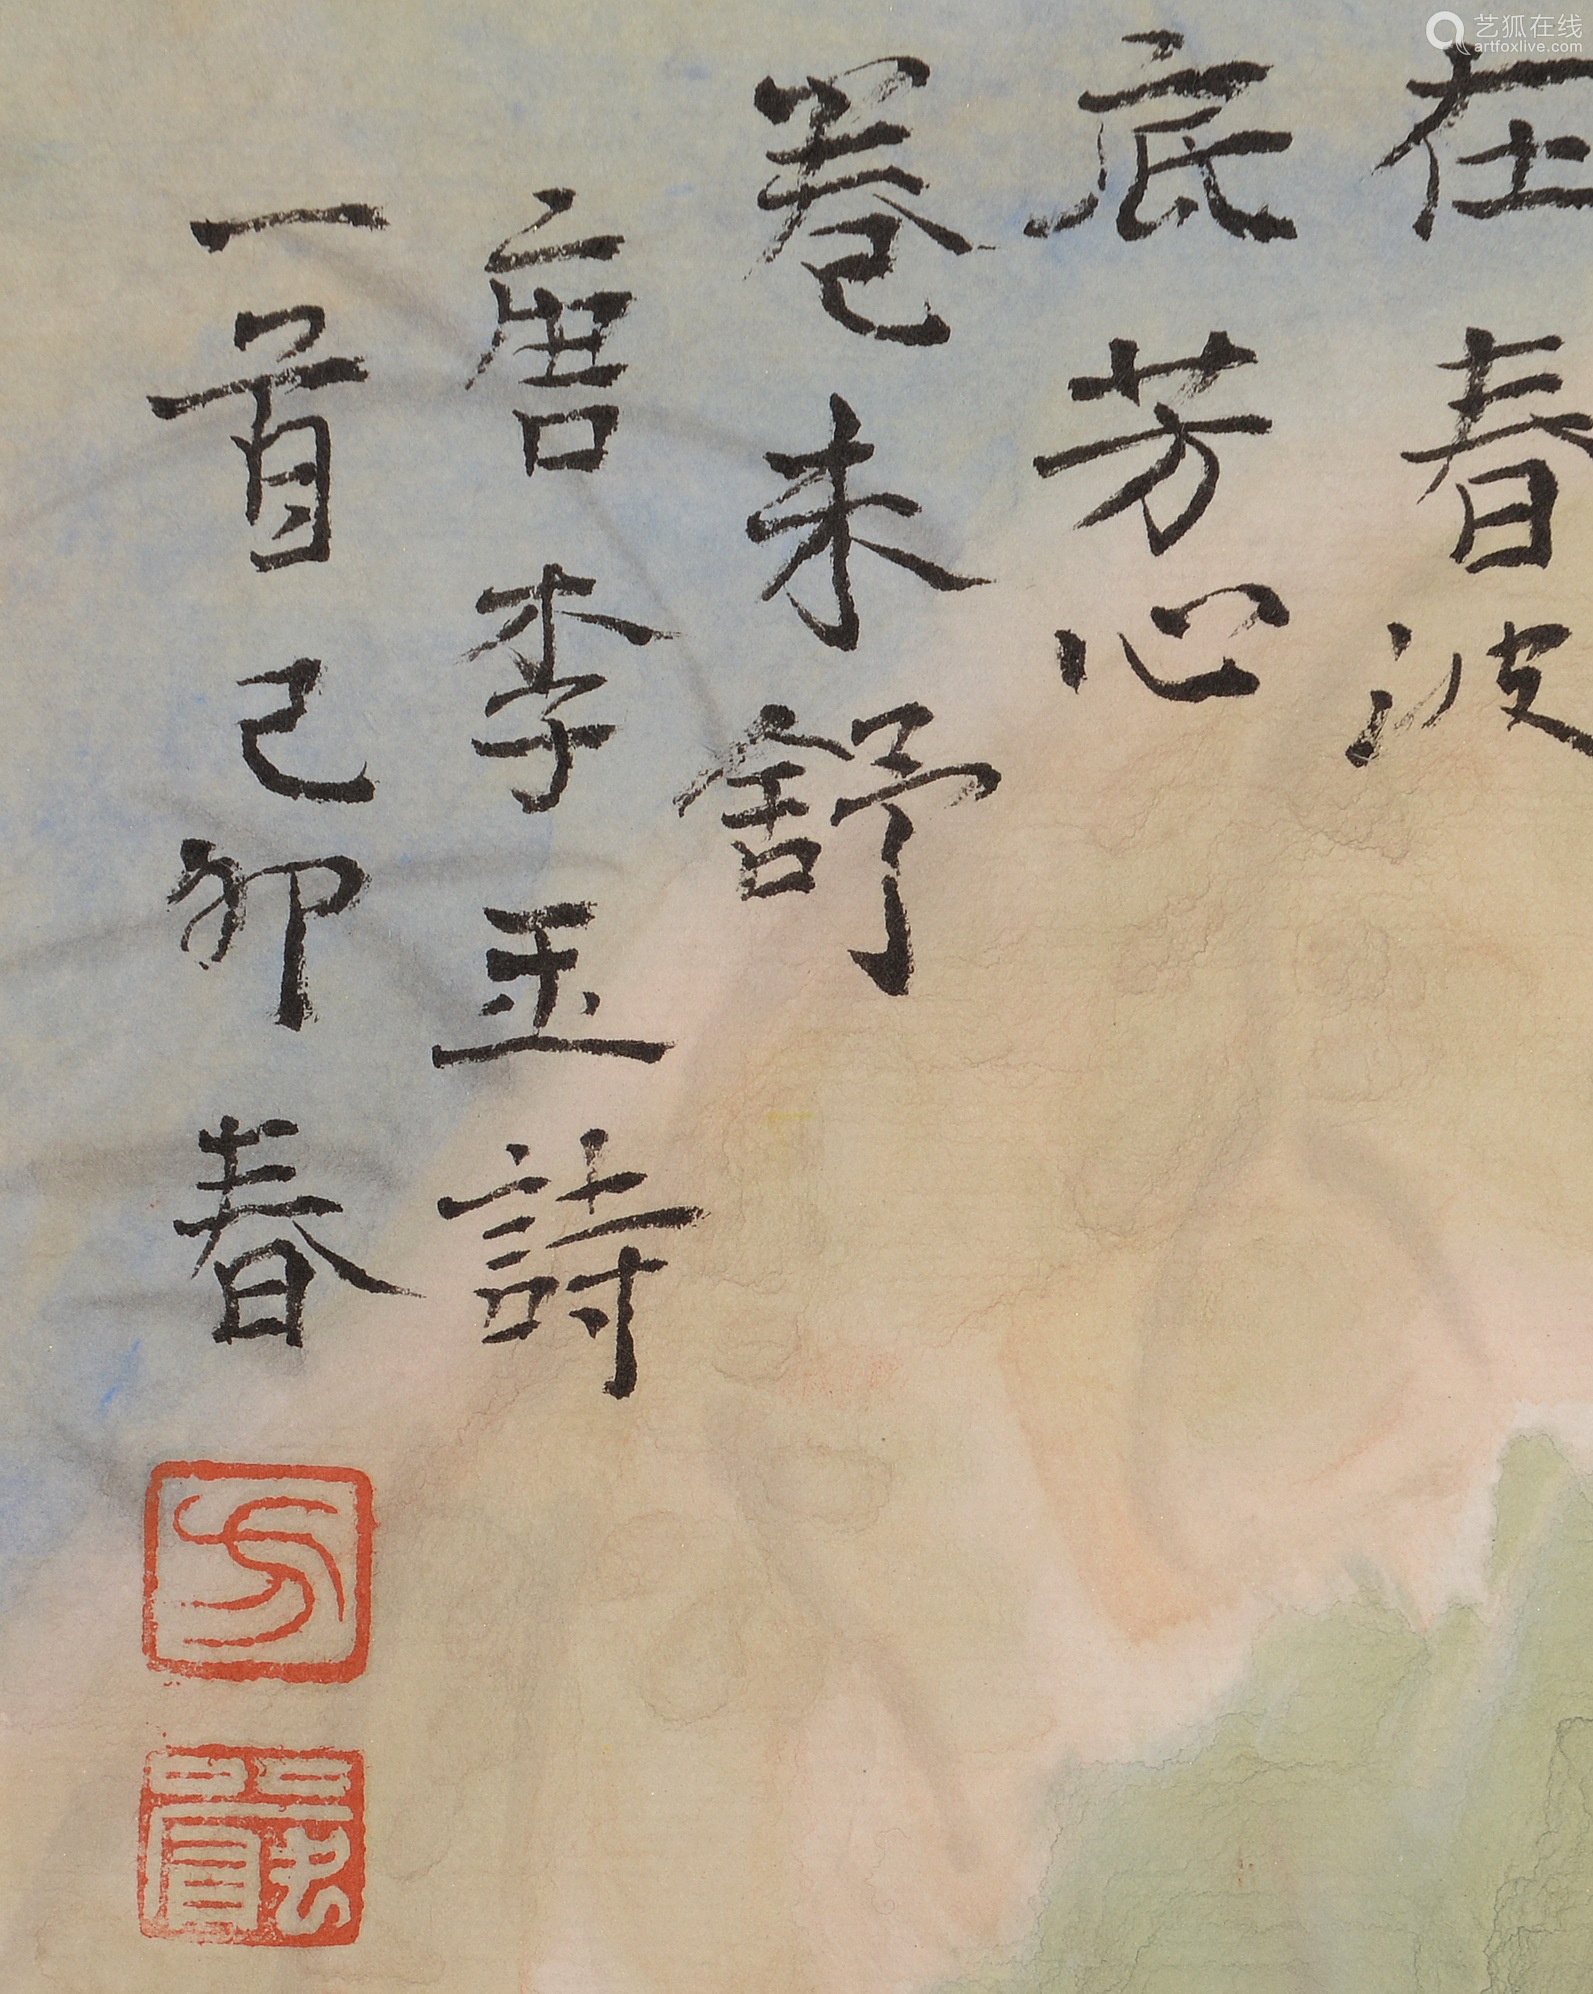 在春波
底芳心
卷未舒
唐李玉詩
一首己卯春
艺狐在线
artfoxlive.com